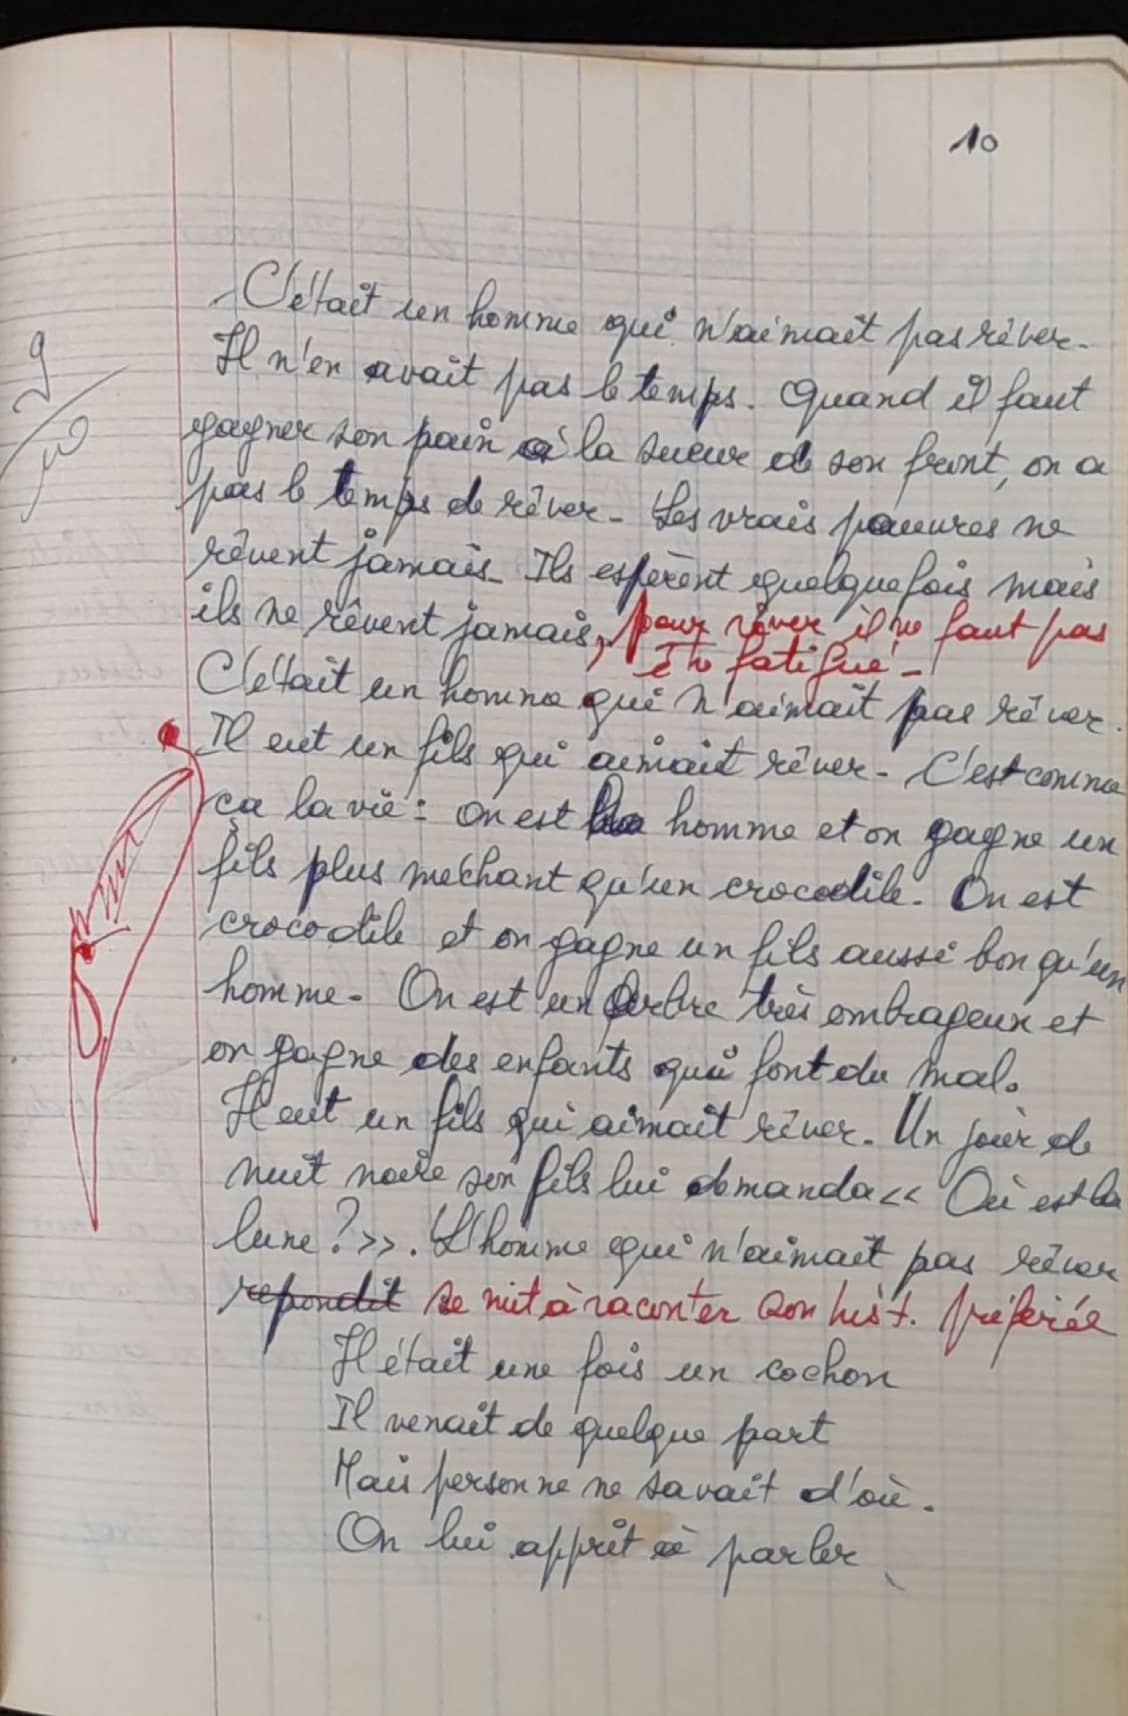 10
C'était un homme qui n'aimait pas rêver.
Il n'en avait pas le temps. Quand il faut
gagner son pain à la sueur de son front, on a
pas le temps de rêver. Les vrais pauvres ne
rêvent jamais. Ils espèrent quelquefois mais
ils ne rêvent jamais, pour rêver il ne faut pas
être fatigué.
C'était un homme qui n'aimait pas rêver.
Il eut un fils qui aimait rêver. C'est comme
ça la vie : on est homme et on gagne un
fils plus méchant qu'un crocodile. On est
crocodile et on gagne un fils aussi bon qu'un
homme. On est un arbre très ombrageux et
on gagne des enfants qui font du mal.
Il eut un fils qui aimait rêver. Un jour de
nuit noire son fils lui demanda << Où est la
lune ? >>. L'homme qui n'aimait pas rêver
repondit se mit à raconter son hist. préférée
Il était une fois un cochon
Il venait de quelque part
Mais personne ne savait d'où.
On lui apprit à parler